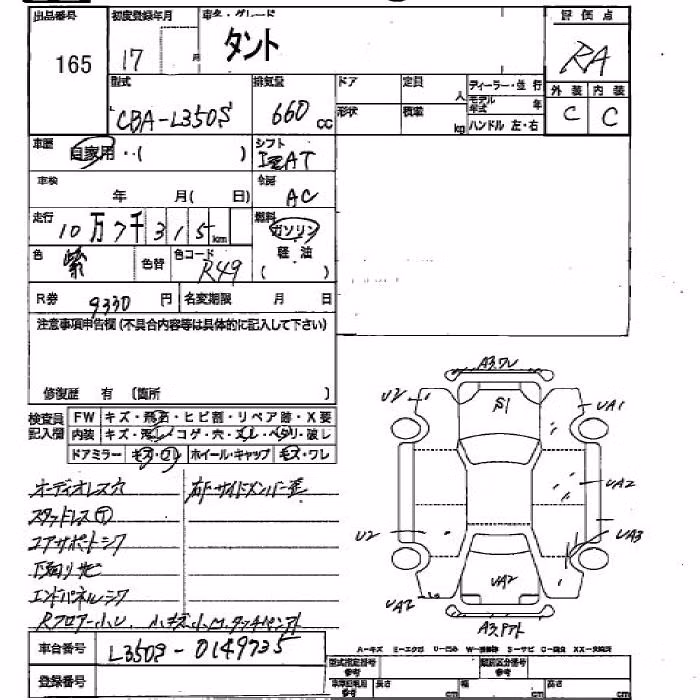 出品番号 初度登録年月 車名・グレード 評価点
165 17 月 タント RA
型式 排気量 ドア 定員 人 ディーラー・並行 外装 内装
CBA-L350S 660 cc 形状 積載 kg モデル年式 年 C C
ハンドル 左・右
車歴 自家用・・( ) シフト
AT
車検 年 月( 日) 冷房 AC
走行 10万7千315km 燃料 ガソリン
軽油
( )
色 紫 色替 色コード R49
R券 9330 円 名変期限 月 日
注意事項申告欄(不具合内容等は具体的に記入して下さい)
修復歴 有 〔箇所 〕
検査員記入欄 FW キズ・飛石・ヒビ割・リペア跡・X要
内装 キズ・汚レ・コゲ・穴・スレ・ベタリ・破レ
ドアミラー キズ・ワレ ホイール・キャップ キズ・ワレ
オーディオレス穴
スタッドレス
コアサポートシワ
下廻りサビ
エンドパネルシワ
A3.ワレ
U2 S1 UA1
UA2
U2 UA3
UA2
UA2
A3.
A-キズ E-エクボ U-凹み W-補修跡 S-サビ C-腐食 XX-交換済
車台番号 L350S-0149735
登録番号
型式指定番号 参考 類別区分番号 参考
参考 長さ cm 幅 cm 高さ cm